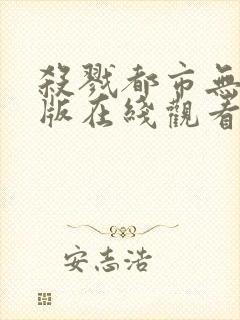 殺戮都市無
版在綫觀看
安志浩